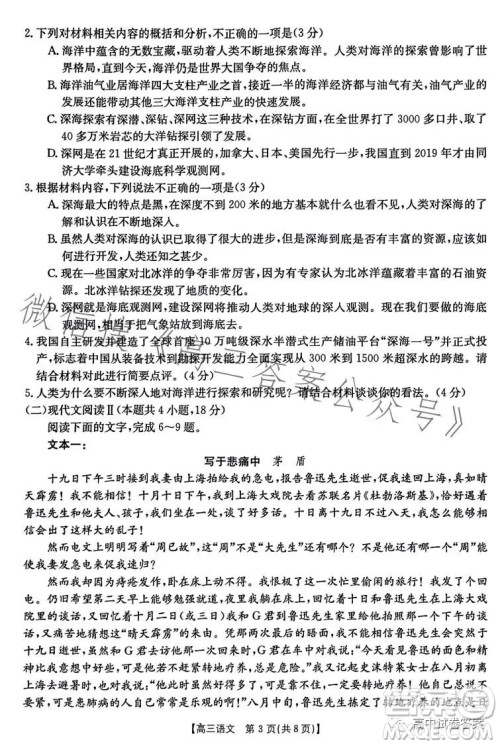 2.下列对材料相关内容的概括和分析,不正确的一项是(3分)
A.海洋中蕴含的无数宝藏,驱动着人类不断地探索海洋。人类对海洋的争夺从古代一
直持续到今天,海洋仍是世界大国争夺的焦点。
B.海洋油气业居海洋四大支柱产业之首,接近一半的海洋经济都与油气有关,油气业的
发展还能带动其他三大海洋支柱产业的快速发展。
C.深海探索有深潜、深钻、深网三大手段,在大洋钻探方面,全世界打了3000多口井,取
40多万米岩芯的大洋钻探引领了全球。
D.深网是在21世纪才真正发展的,加拿大、日本、美国先行,我国直到2019年才由同
济大学牵头建设海底科学观测网。
3.根据材料内容,下列说法不正确的一项是(3分)
A.深海最大的特点是黑暗,在深度不到200米的地方开始变暗,人类对海洋深海的了
解和认识在不断加深。
B.虽然人类对深海的了解很少,但是深海有极为丰富的资源,应该在保护自然的前提
下,加大对深海资源的开发力度。
C.现在一些国家对北冰洋的争夺非常厉害,原因就在于北冰洋蕴藏着丰富的石油资
源。只是由于环境恶劣,人类对北冰洋的探测和了解较少。
D.深网就是海底观测网,海底观测网将推动人类对地球的深入观测。人类建设海底观
测网,相当于把气象站放到海底去。
4.我国自主研发并建造了全球首座10万吨级深水半潜式生产储油平台“深海一号”并正式投
产,标志着中国从装备技术到勘探开发能力全面实现从300米到1500米超深水的跨越。请
结合材料对此进行简要点评。(4分)
5.人类为什么要不断深入地对海洋进行探索和开发?请结合材料谈谈你的看法。(4分)
(二)现代文阅读Ⅱ(本题共4小题,18分)
阅读下面的文字,完成6~9题。
文本一:
写于悲痛中 茅盾
十九日下午三时接到我妻由上海拍给我的急电,报告鲁迅先生逝世,好像是晴天
霹雳了!十月十日下午,我到上海大戏院去看苏联名片《杜勃洛斯基》,恰好遇见
鲁迅先生和他夫人公子海婴,谈了好一会,那时他的精神很好。怎么隔了七八天会
出了这样大的乱子!
然而电文上明明写着“周已故”,这“周”不是“大先生”还有哪个?不过一个“周”能
使我妻发急电来催我回家么?
然而恰又因为痔疮发作,卧在床上动不得,我恨极了这一次忙里偷闲的旅行!我
仍旧希望第二天早上能够勉强就道,夜里,我躺在床上,回忆着十月十日在大戏
院里的谈话,又回忆着十月二日(或三日)我和G君到鲁迅先生寓中和他的谈话,
又痛苦地猜想那“晴天霹雳”似的突然的变化是什么原因;我当时的感想,(直到此时
十九日逝世),就是那天我和G君从他寓中出来时说的:“今天看见鲁迅先生的兴
致和精神都很好,我觉得他若不是赶快转地疗养,总是危险。”他的病,谁也知道是
随时会发生变化的,然而他若果能转地疗养,则未始不可挽救。五月史沫特莱女士在八月初
高三语文 第3页(共8页)
微信搜《
答案公众号》
高中试卷答案